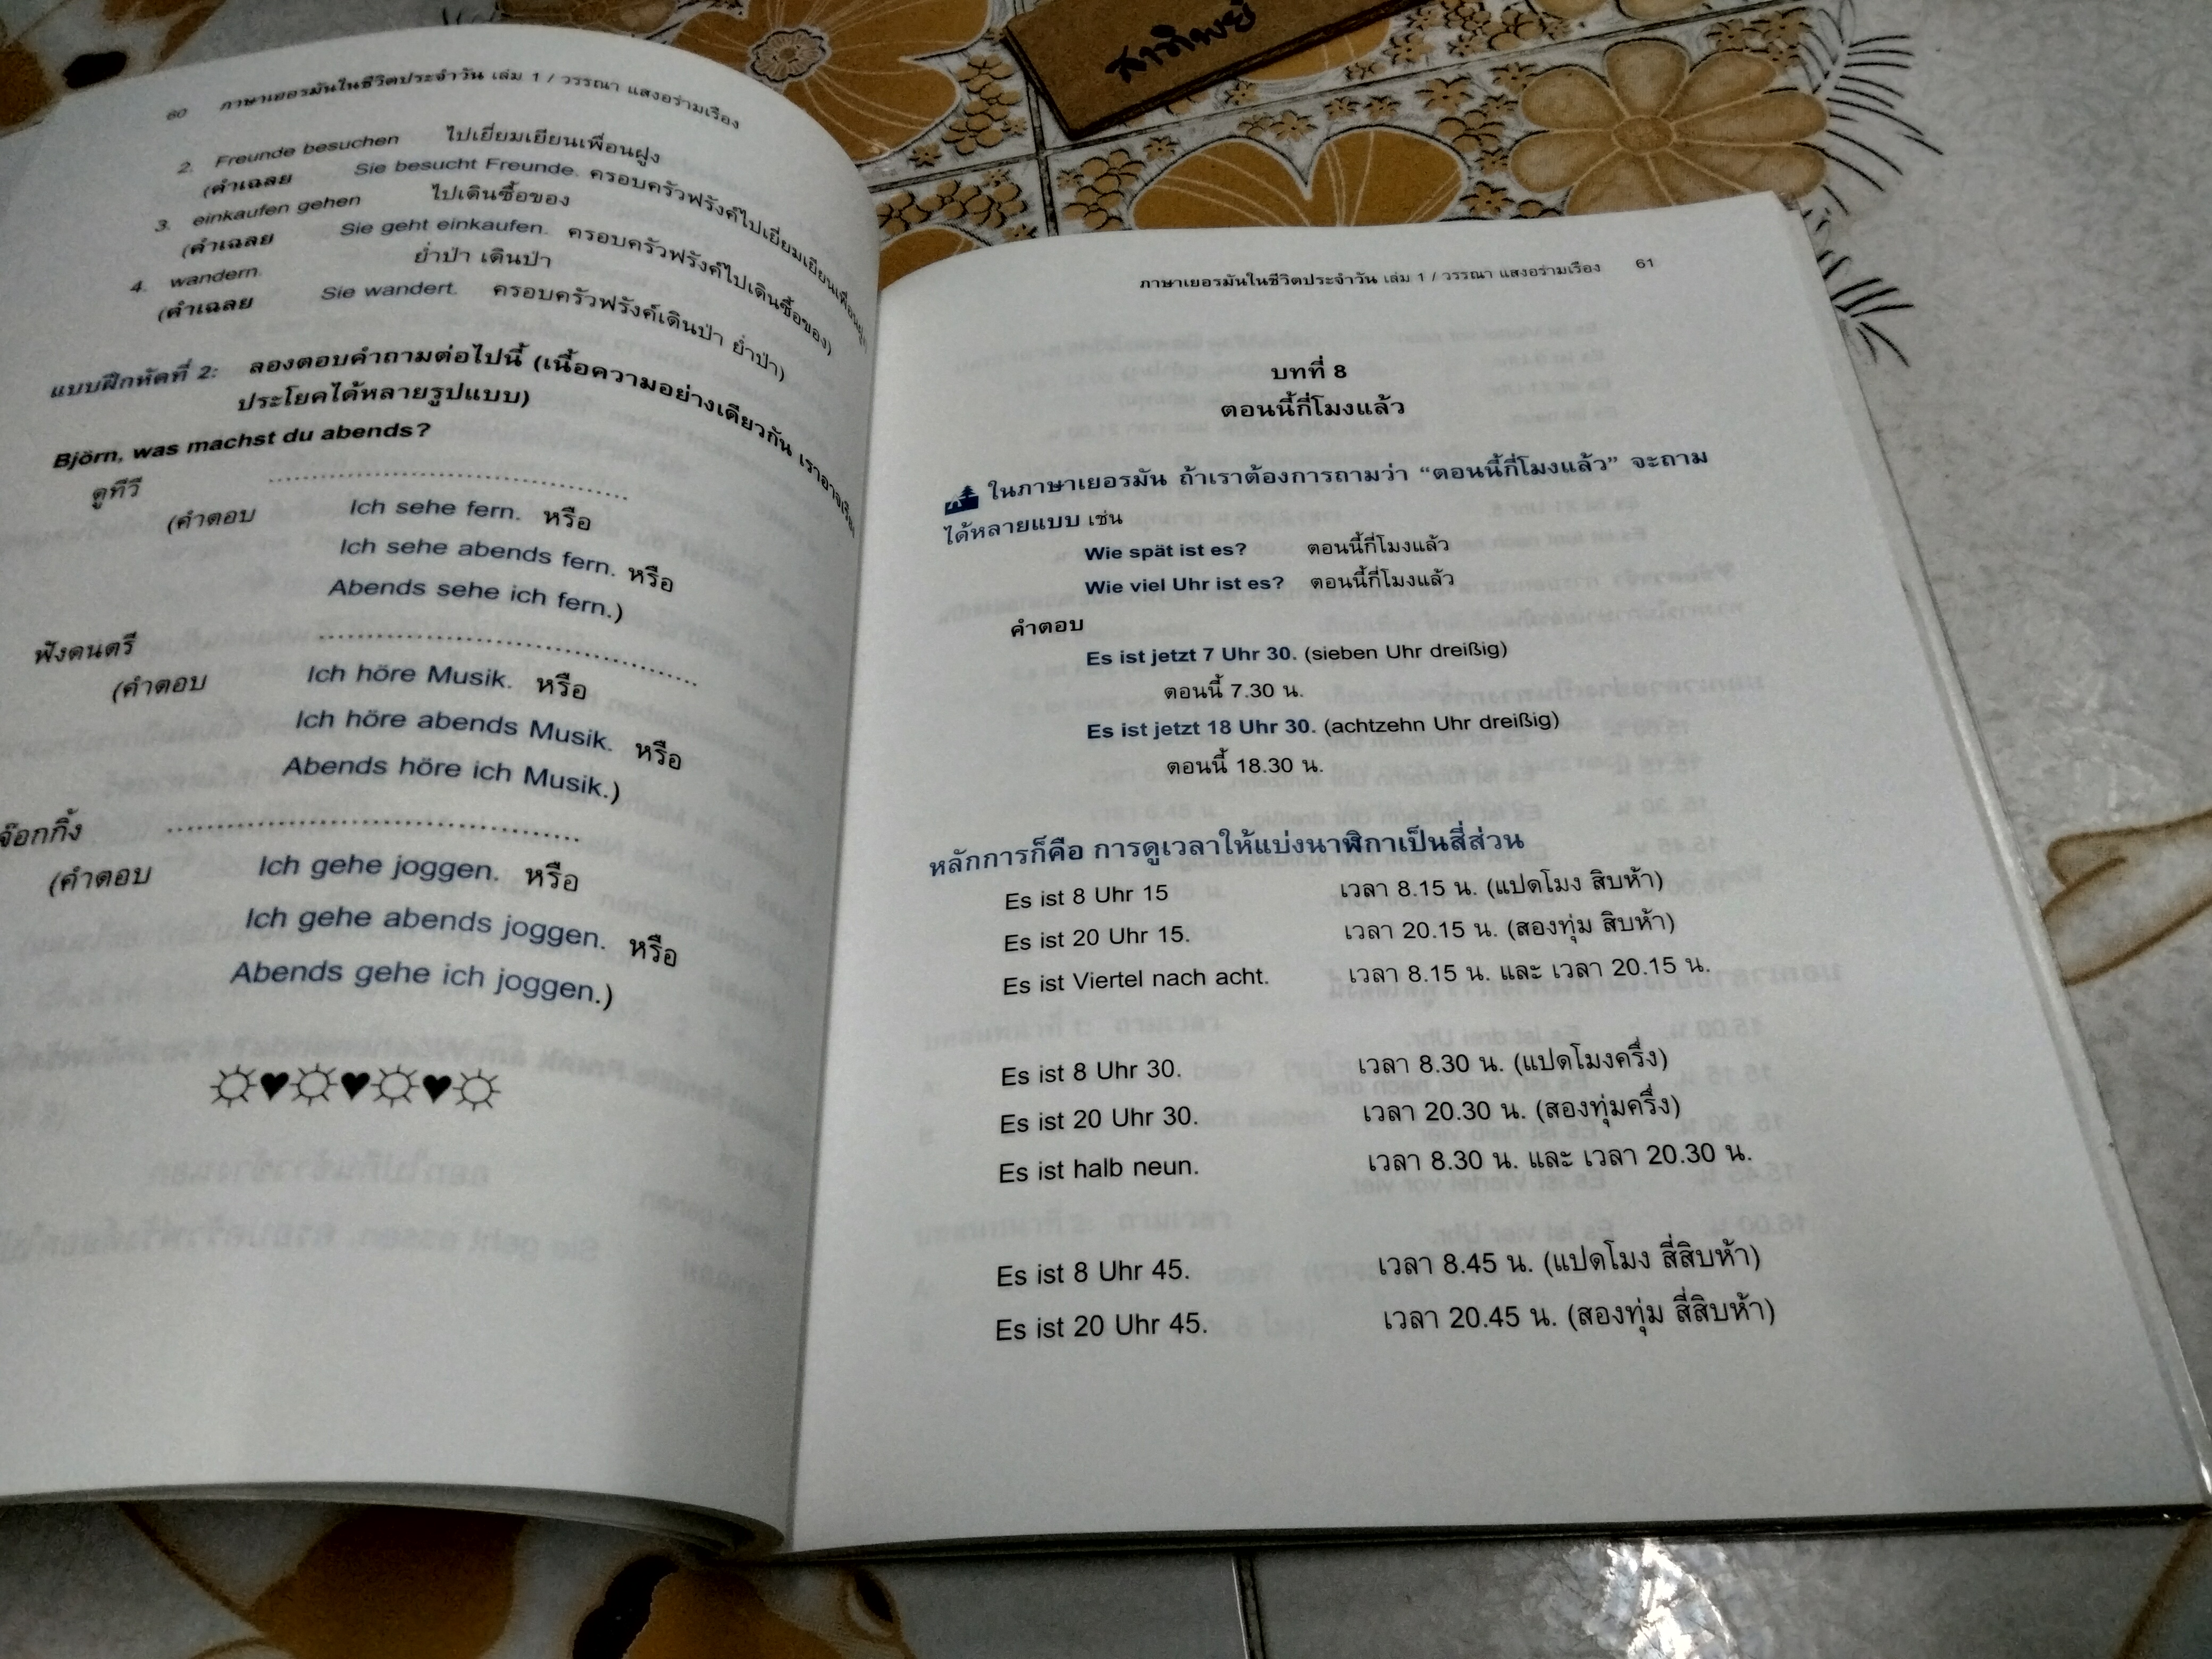 สาทิพย์
60 ภาษาเยอรมันในชีวิตประจำวัน เล่ม 1 / วรรณา แสงอร่ามเรือง
2. Freunde besuchen ไปเยี่ยมเยียนเพื่อนฝูง
(คำเฉลย Sie besucht Freunde. ครอบครัวฟรังค์ไปเยี่ยมเยียนเพื่อนฝูง
3. einkaufen gehen ไปเดินซื้อของ
(คำเฉลย Sie geht einkaufen. ครอบครัวฟรังค์ไปเดินซื้อของ)
4. wandern. ย่ำป่า เดินป่า
(คำเฉลย Sie wandert. ครอบครัวฟรังค์เดินป่า ย่ำป่า)
แบบฝึกหัดที่ 2: ลองตอบคำถามต่อไปนี้ (เนื้อความอย่างเดียวกัน เราอาจเรียง
ประโยคได้หลายรูปแบบ)
Björn, was machst du abends?
ดูทีวี ........................................
(คำตอบ Ich sehe fern. หรือ
Ich sehe abends fern. หรือ
Abends sehe ich fern.)
ฟังดนตรี ........................................
(คำตอบ Ich höre Musik. หรือ
Ich höre abends Musik. หรือ
Abends höre ich Musik.)
จ๊อกกิ้ง ........................................
(คำตอบ Ich gehe joggen. หรือ
Ich gehe abends joggen. หรือ
Abends gehe ich joggen.)
ภาษาเยอรมันในชีวิตประจำวัน เล่ม 1 / วรรณา แสงอร่ามเรือง 61
บทที่ 8
ตอนนี้กี่โมงแล้ว
ในภาษาเยอรมัน ถ้าเราต้องการถามว่า “ตอนนี้กี่โมงแล้ว” จะถาม
ได้หลายแบบ เช่น
Wie spät ist es? ตอนนี้กี่โมงแล้ว
Wie viel Uhr ist es? ตอนนี้กี่โมงแล้ว
คำตอบ
Es ist jetzt 7 Uhr 30. (sieben Uhr dreißig)
ตอนนี้ 7.30 น.
Es ist jetzt 18 Uhr 30. (achtzehn Uhr dreißig)
ตอนนี้ 18.30 น.
หลักการก็คือ การดูเวลาให้แบ่งนาฬิกาเป็นสี่ส่วน
Es ist 8 Uhr 15 เวลา 8.15 น. (แปดโมง สิบห้า)
Es ist 20 Uhr 15. เวลา 20.15 น. (สองทุ่ม สิบห้า)
Es ist Viertel nach acht. เวลา 8.15 น. และ เวลา 20.15 น.
Es ist 8 Uhr 30. เวลา 8.30 น. (แปดโมงครึ่ง)
Es ist 20 Uhr 30. เวลา 20.30 น. (สองทุ่มครึ่ง)
Es ist halb neun. เวลา 8.30 น. และ เวลา 20.30 น.
Es ist 8 Uhr 45. เวลา 8.45 น. (แปดโมง สี่สิบห้า)
Es ist 20 Uhr 45. เวลา 20.45 น. (สองทุ่ม สี่สิบห้า)